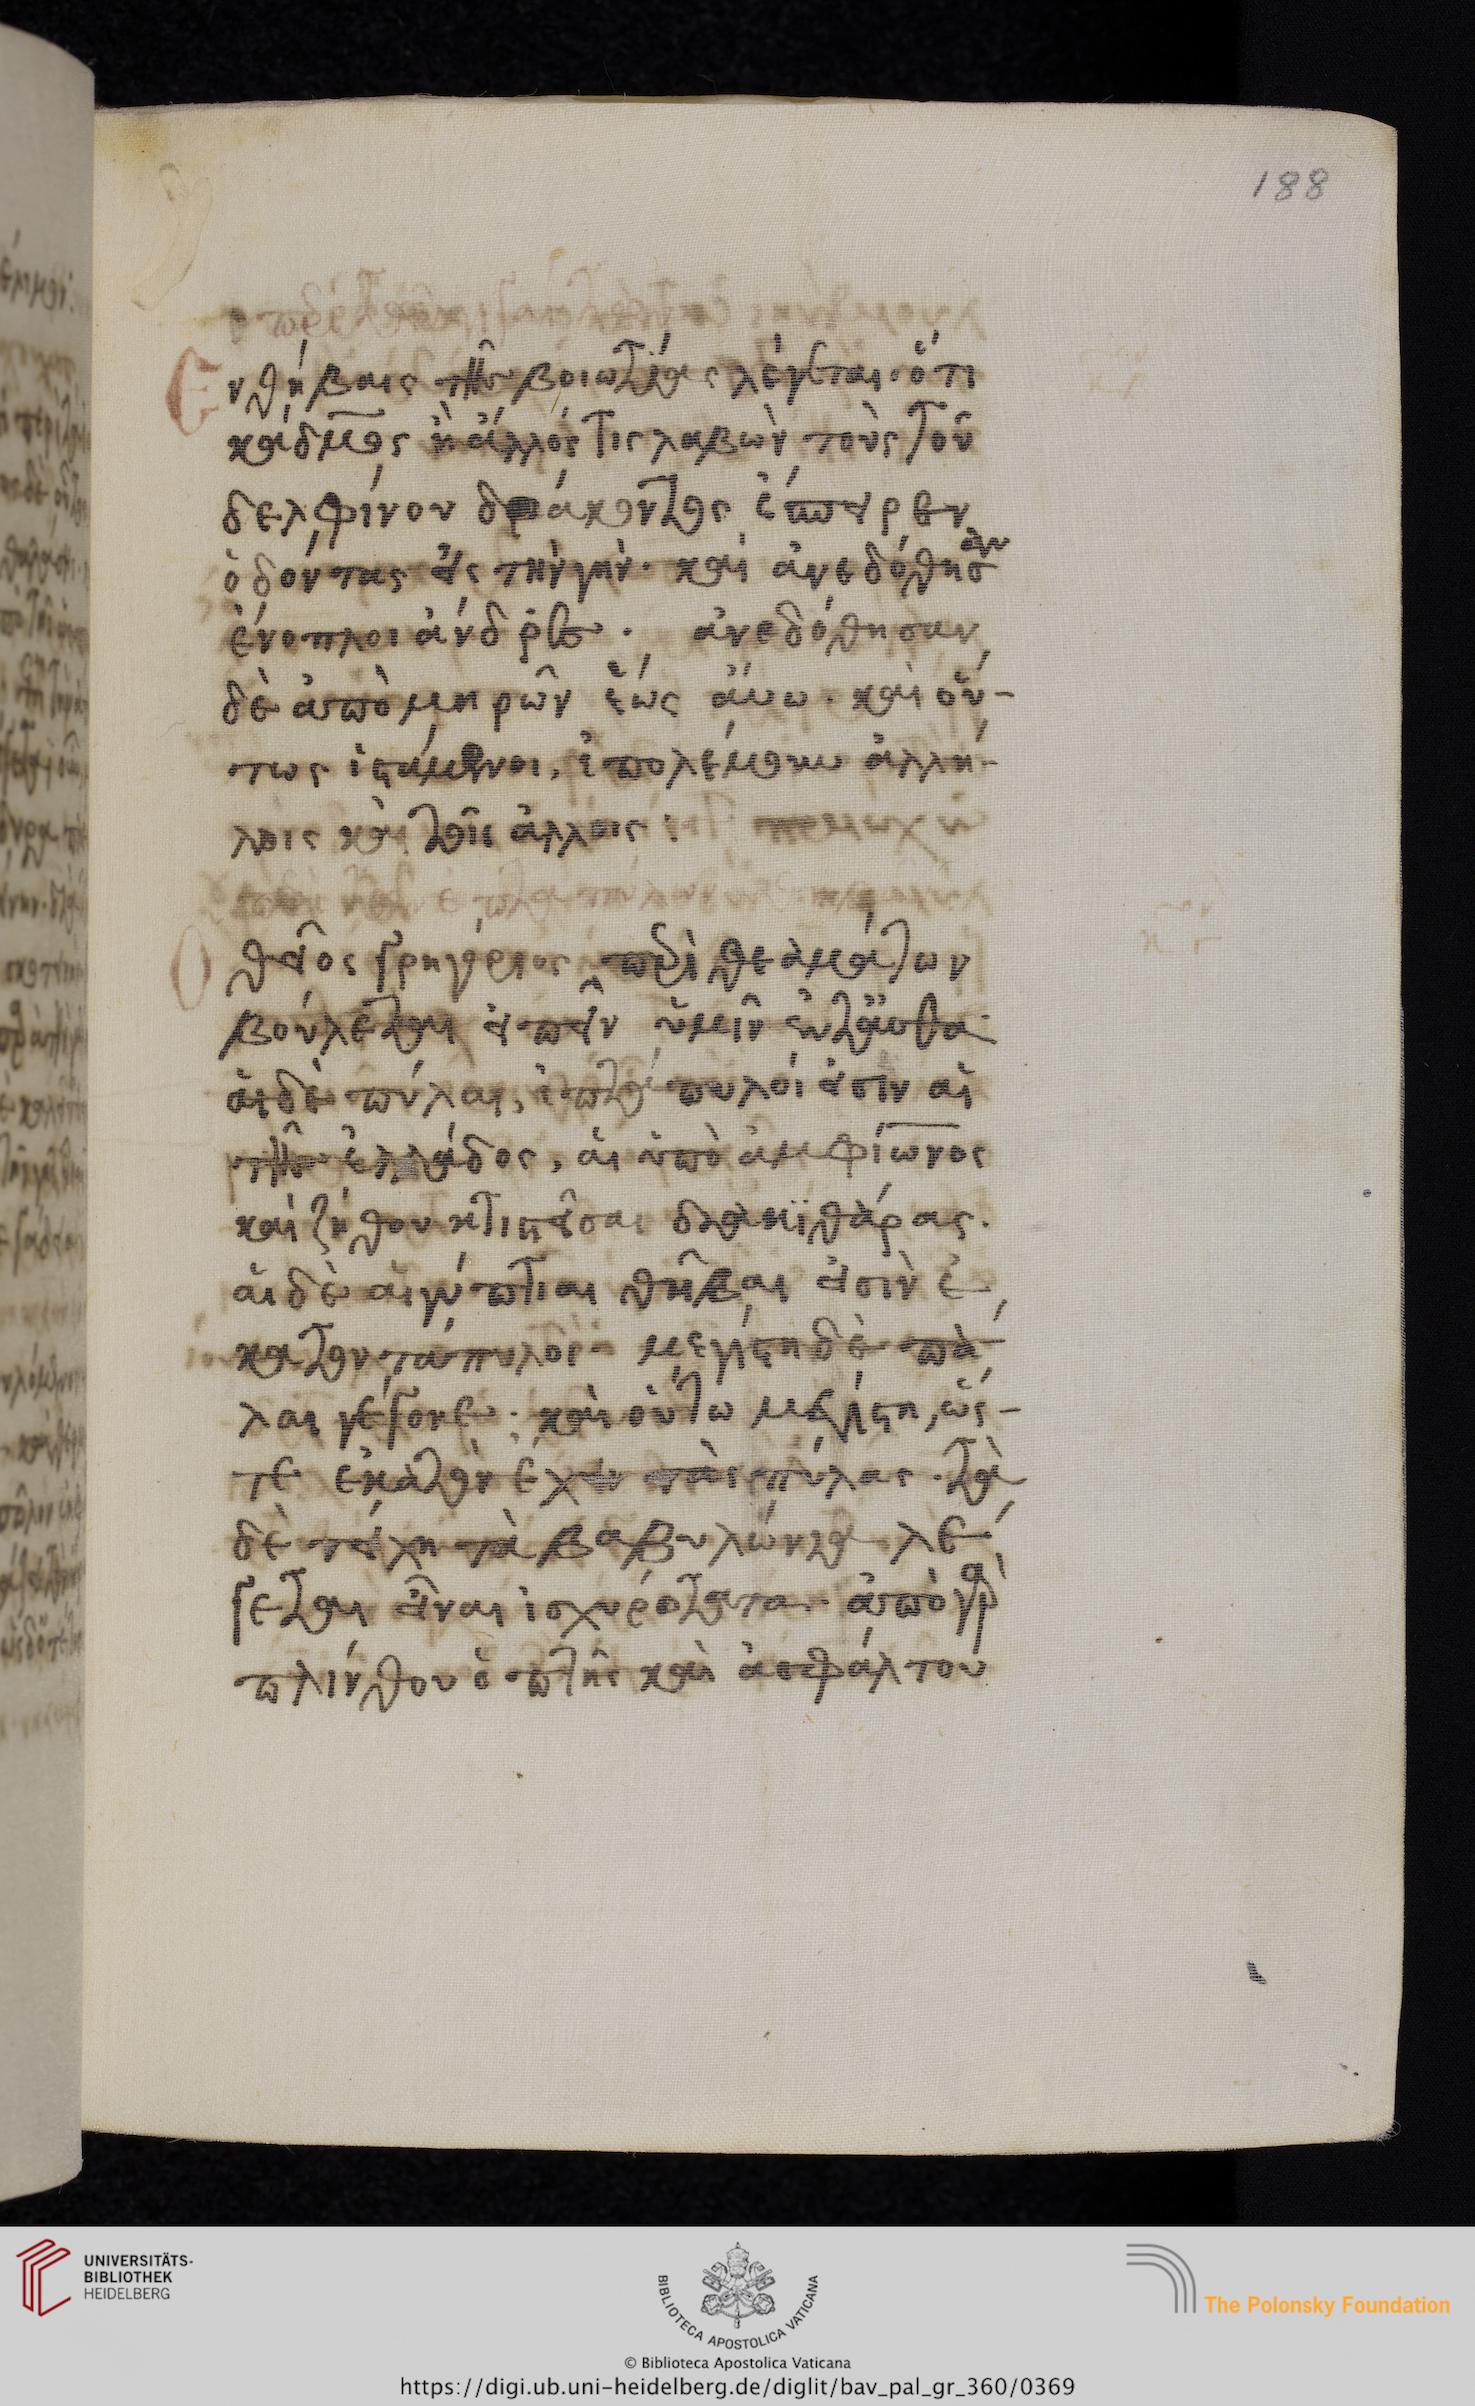 188
Ἐν θήβαις τῆς βοιωτίας λέγεται· ὅτι
κάδμος ἢ ἄλλός τις λαβὼν τοὺς τοῦ
δελφίνου δράκοντος ἔσπειρεν
ὀδόντας εἰς τὴν γῆν· καὶ ἀνεδόθησαν
ἔνοπλοι ἄνδρες· ἀνεδόθησαν
δὲ ἀπὸ μηρῶν ἕως ἄνω· καὶ οὕ-
τως ἱστάμενοι, ἐπολέμουν ἀλλή-
λοις καὶ τοῖς ἄλλοις:
Ὁ θεῖος γρηγόριος περὶ θεαμάτων
βούλεται εἰπεῖν ὑμῖν ἐνταῦθα·
αἱ δὲ πύλαι, ἑπτάπυλοί εἰσιν αἱ
τῆς ἑλλάδος, αἱ ὑπὸ ἀμφίωνος
καὶ ζήθου κτισθεῖσαι διὰ κιθάρας·
αἱ δὲ αἰγύπτιαι θῆβαι εἰσὶν ἑ
κατοντάπυλοι μεγίστη δὲ πά
λαι γέγονε· καὶ οὕτω μεγίστη, ὥσ-
τε ἑκατὸν ἔχειν τὰς πύλας· τὰ
δὲ τείχη τὰ βαβυλώνια λέ
γεται εἶναι ἰσχυρότατα· ἀπὸ γὰρ
πλίνθου ὀπτῆς καὶ ἀσφάλτου
UNIVERSITÄTS-
BIBLIOTHEK
HEIDELBERG
BIBLIOTECA APOSTOLICA VATICANA
The Polonsky Foundation
© Biblioteca Apostolica Vaticana
https://digi.ub.uni-heidelberg.de/diglit/bav_pal_gr_360/0369